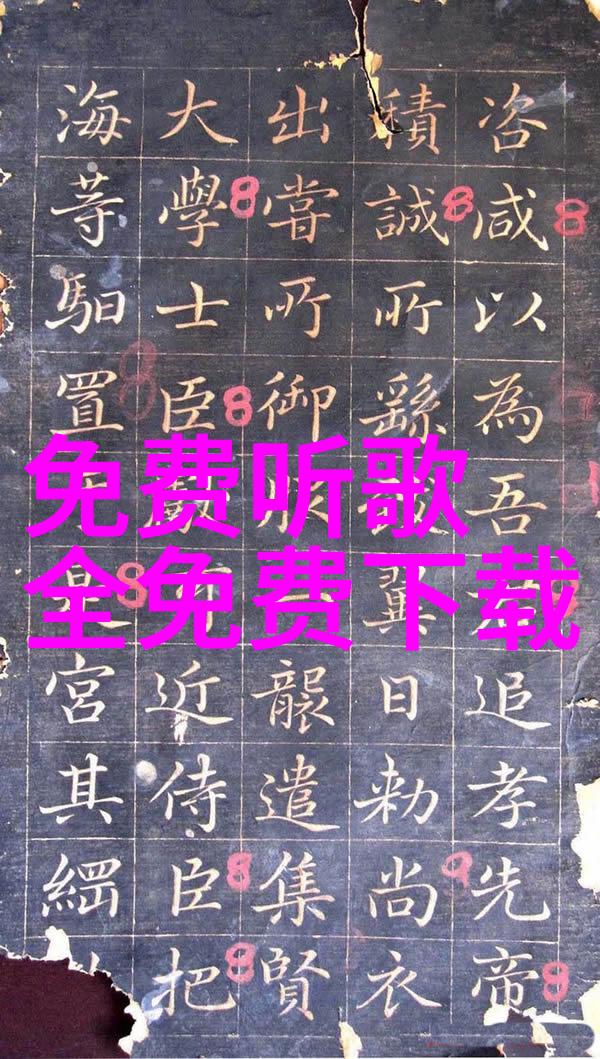 咨咸以為吾追孝先帝
積誠所繇翼日勅尚衣
出嘗所御服一襲遣集賢
大學士臣近侍臣把
海等馹置是宮其
免费听歌
全免费下载